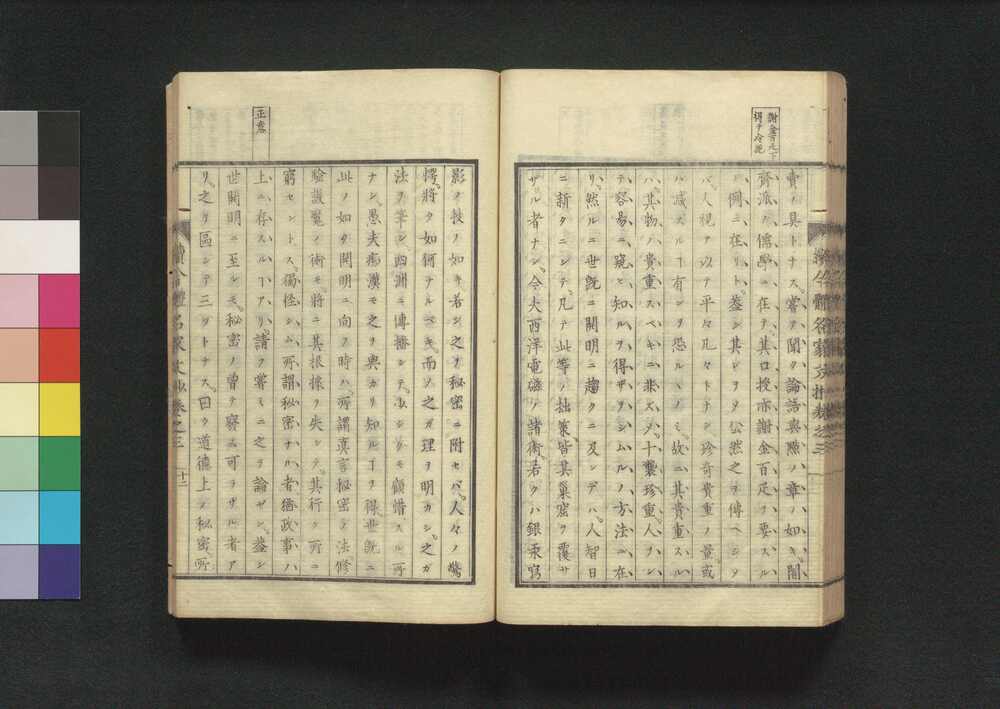 賣ノ具トナス。嘗テ聞ク論語輿隱ノ章ノ如キ、闇
齊派ノ儒學ニ在テ、其口授亦謝金百疋ヲ要スル
ノ例ニ在リト。蓋シ其レヲシタ公然之ヲ傳ヘシ
バ、人視テ以テ平々凡々トナシ珍奇貴重ノ量或
ハ減スルヿ有ンヲ恐ルヽノミ。故ニ其貴重スル
ハ、其物ノ貴重スベキニ非ズ、十襲珍重、人ヲシ
テ容易ニ窺ヒ知ルヲ得ザラシムルノ方法ニ在
リ。然ルニ世既ニ開明ニ趨クニ及ンデハ、人智日
ニ新タニシテ凡テ此等ノ拙策、皆其巢窟ヲ覆サ
ザル者ナシ。今夫西洋電磁ノ諸術、若クハ銀汞寫
謝金百疋下
得テ冷
影ノ技ノ如キ、若シ之ヲ秘密ニ附セバ、人々ノ驚
愕、將タ如何ナルベキ。而ソ之ガ理ヲ明カシ、之ガ
法ヲ筆シ、西洲ニ傳播シテ、少シクモ顧惜スル所
ナシ。愚夫痴漢モ之ヲ與カリ知ルヿヲ得。世既ニ
此ノ如ク開明ニ向フ時ハ、所謂眞言秘密ノ法、修
驗讖冤ノ術モ將ニ其根據ヲ失シテ、其行ク所ニ
窮セントス。獨怪シム、所謂秘密ナル者猶政事ノ
上ニ存スルヿアリ。請フ嘗ミニ之ヲ論ゼン。蓋シ
世開明ニ至ルモ、秘密ノ曾テ廢ス可ラザル者ア
リ。之ヲ區シテ三ツトナス。曰ク道德上ノ秘密、所
正意
續今體名家文抄卷之三
十二